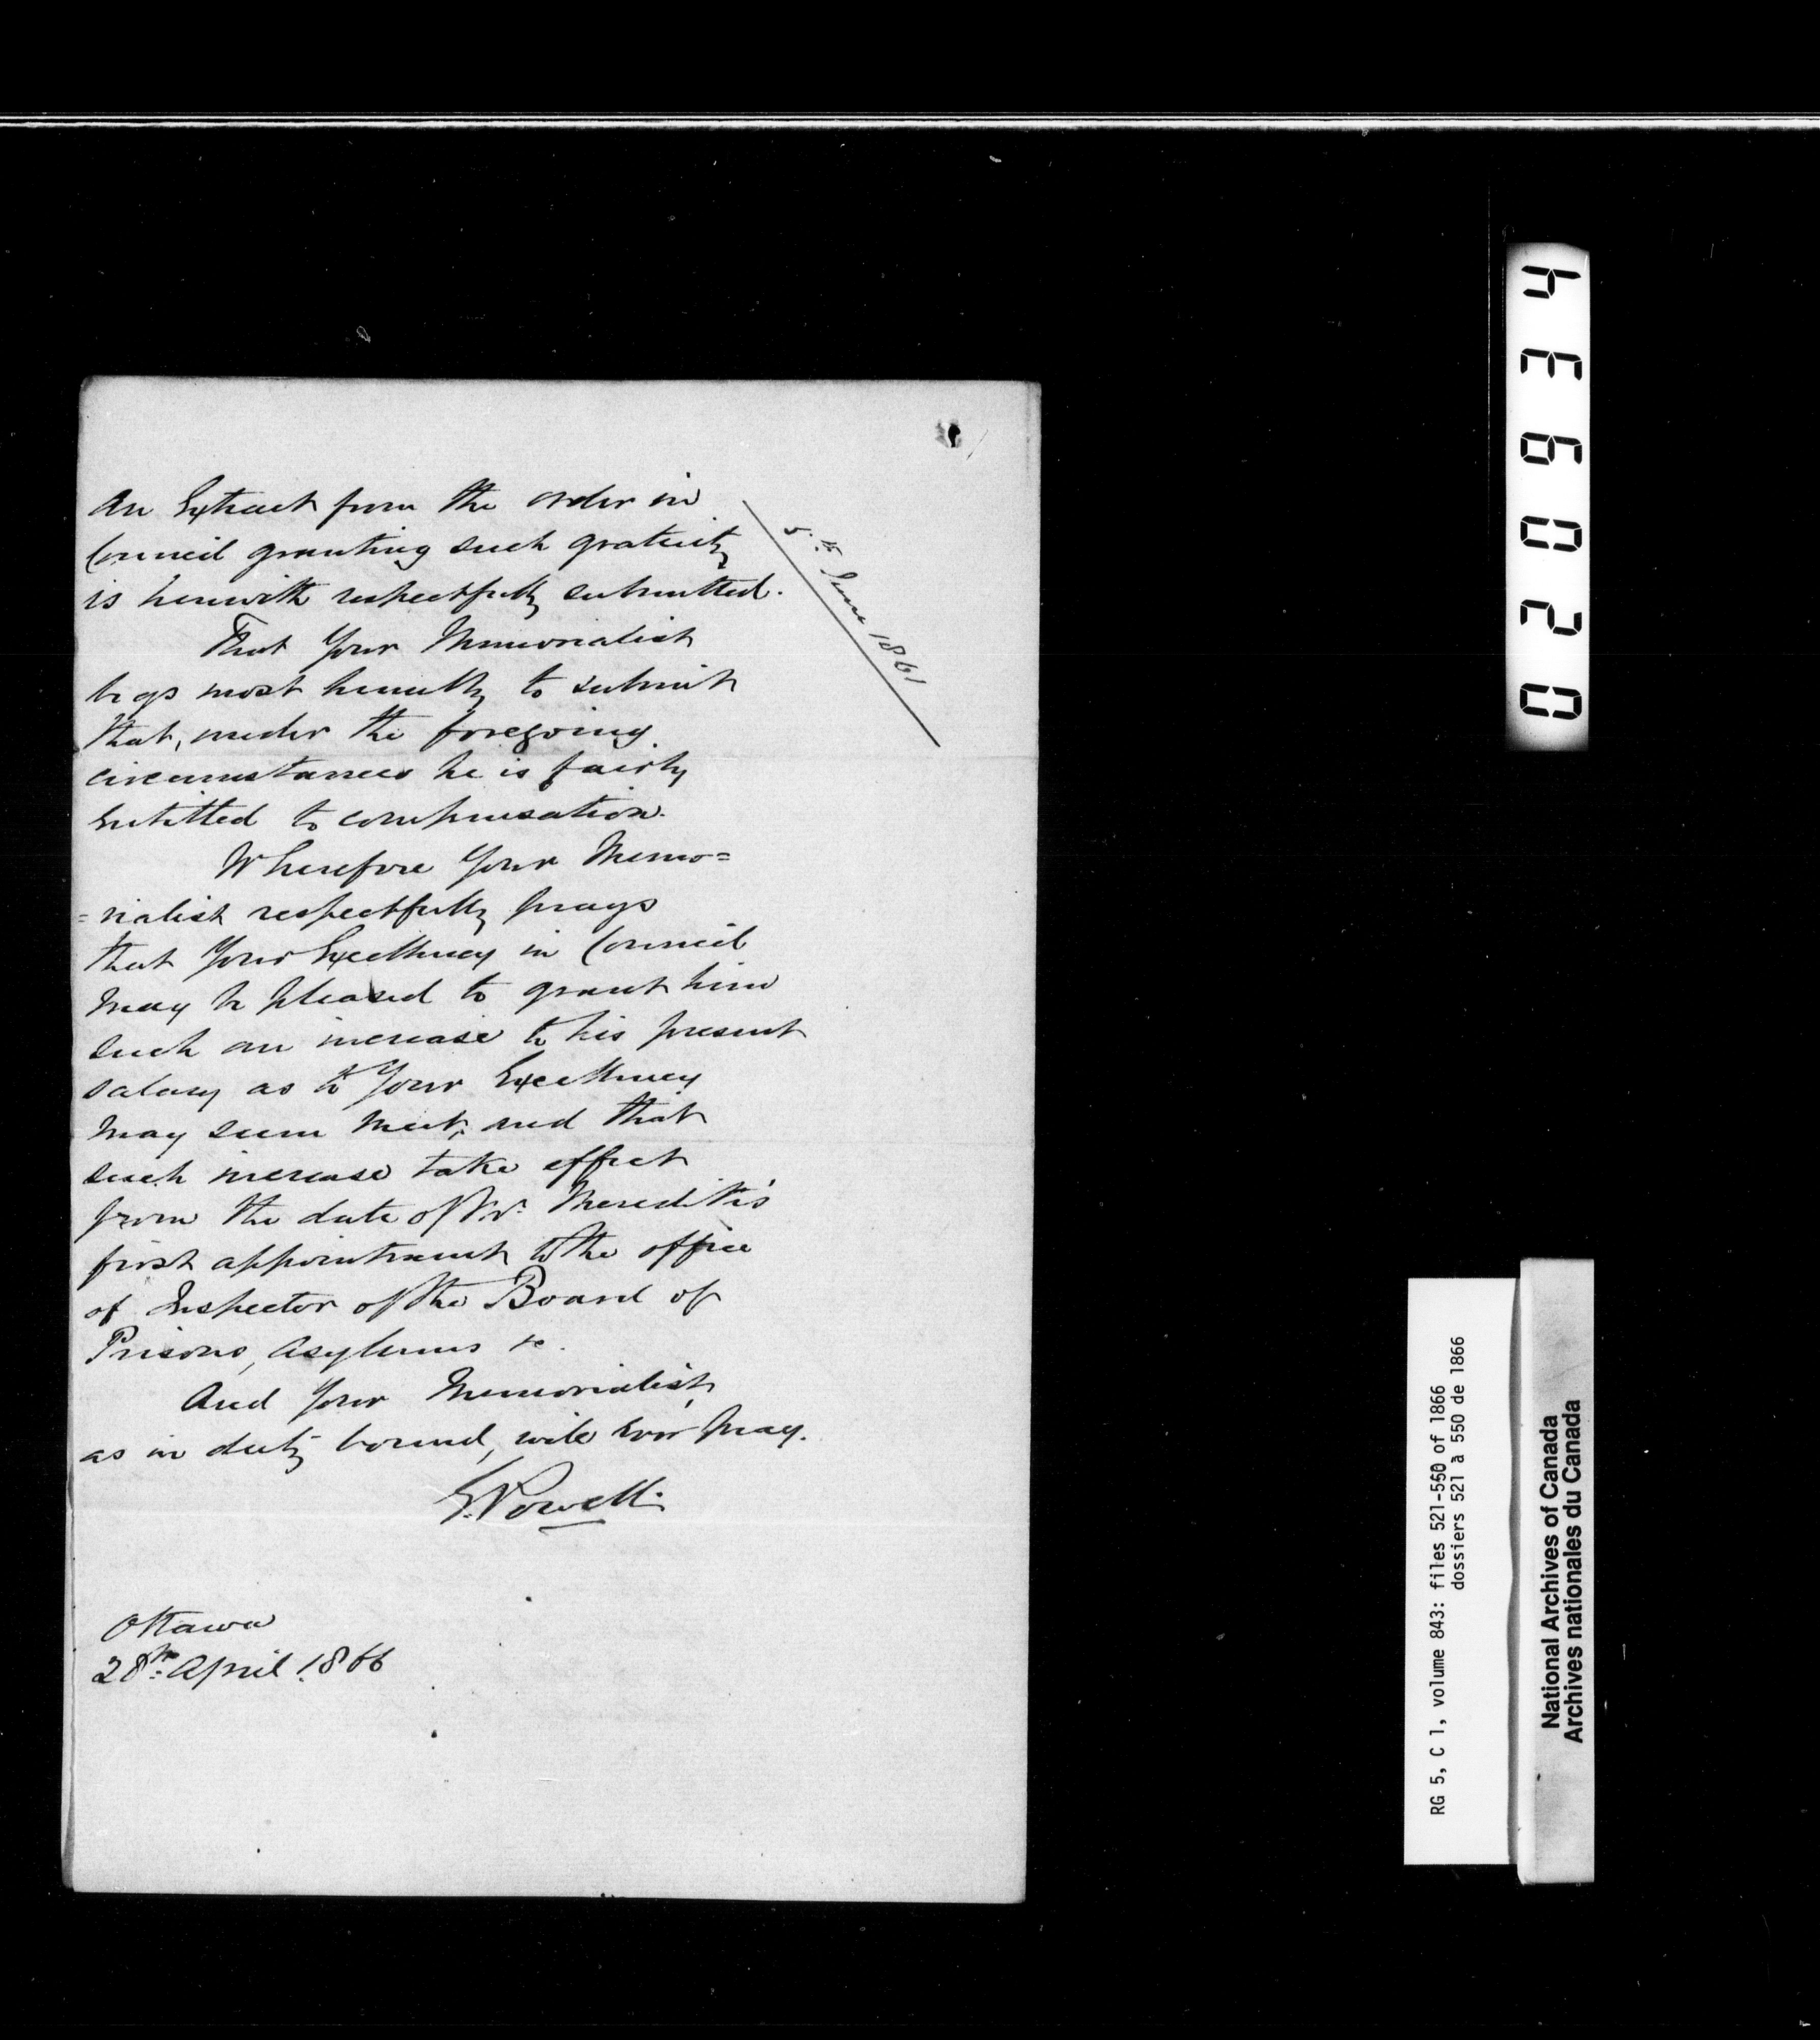 An Extract from the order in
Council granting such gratuity
is herewith respectfully submitted.
5th. June 1861
That Your Memorialist
begs most humbly to submit
that, under the foregoing
circumstances he is fairly
entitled to compensation.
Wherefore Your Memo=
=rialist respectfully prays
that Your Excellency in Council
may be pleased to grant him
such an increase to his present
salary as to Your Excellency
may seem meet, and that
such increase take effect
from the date of Mr. Meredith's
first appointment to the office
of Inspector of the Board of
Prisons, Asylums &c.
And Your Memorialist,
as in duty bound, will ever pray.
G. Powell.
Ottawa
28th. April. 1866
020934
RG 5, C 1, volume 843: files 521-550 of 1866
dossiers 521 à 550 de 1866
National Archives of Canada
Archives nationales du Canada